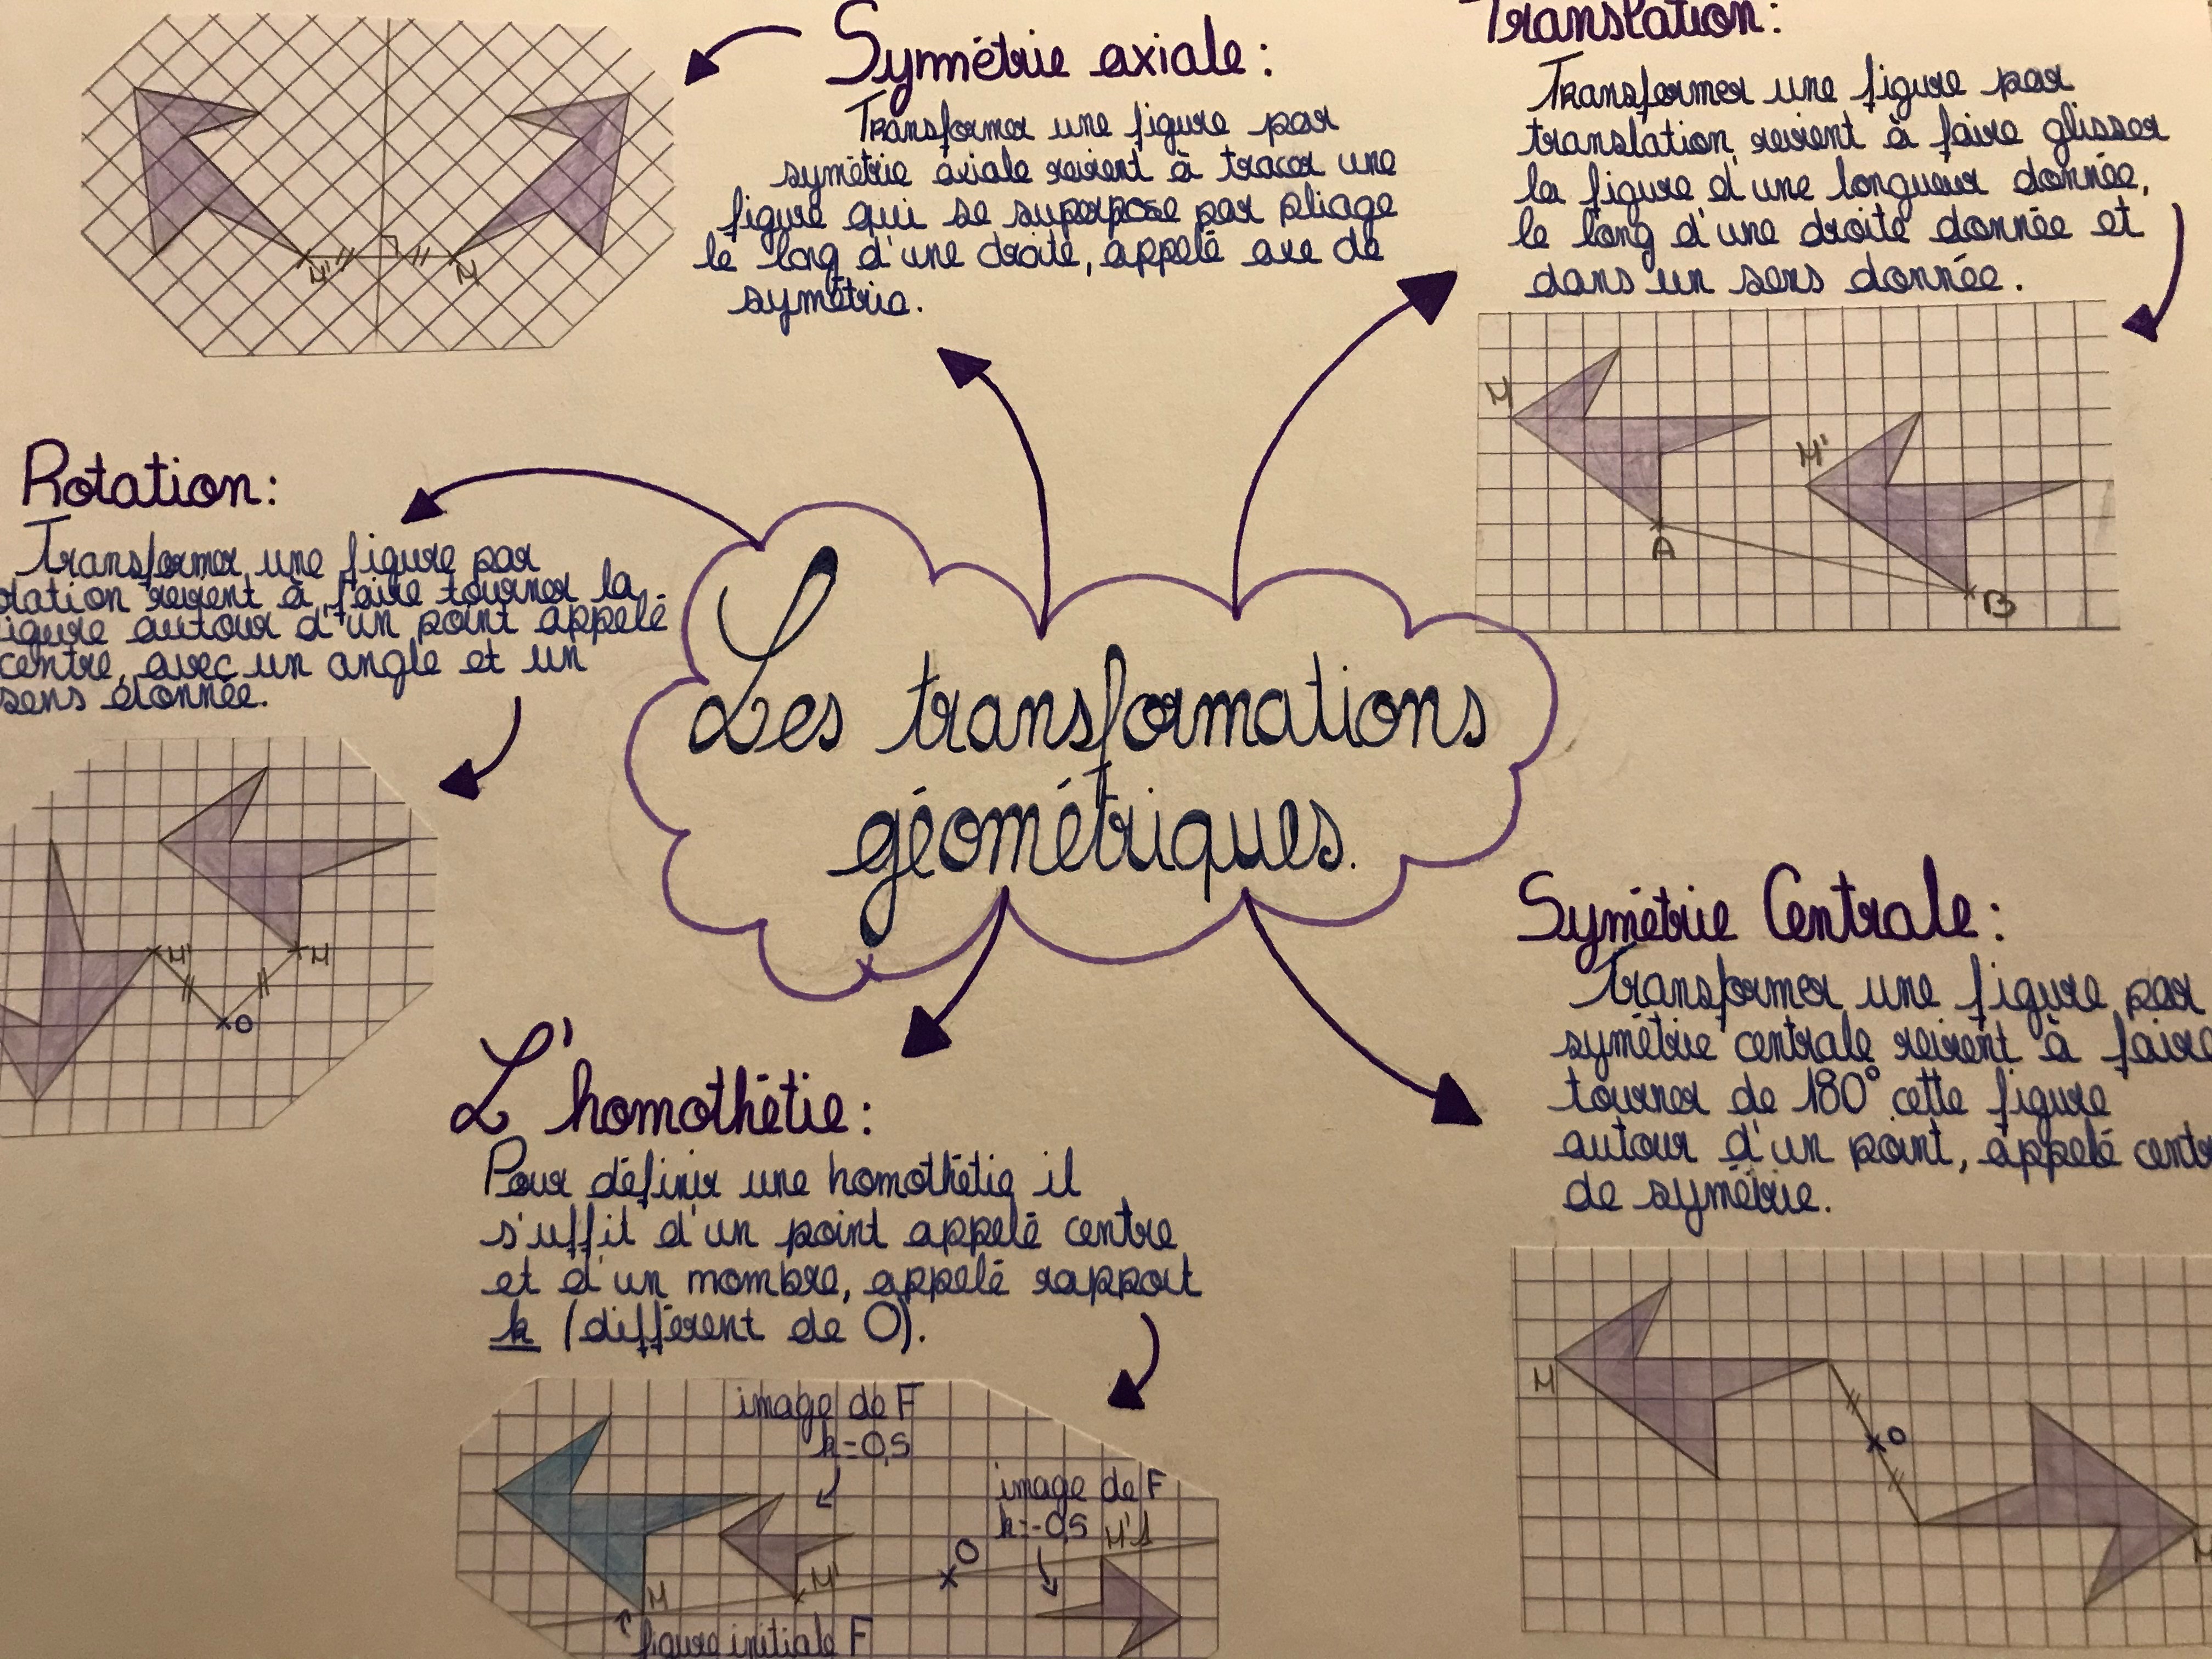 Symétrie axiale :
Transformer une figure par
symétrie axiale revient à tracer une
figure qui se superpose par pliage
le long d'une droite, appelé axe de
symétrie.
M'
M
Translation :
Transformer une figure par
translation revient à faire glisser
la figure d'une longueur donnée,
le long d'une droite donnée et
dans un sens donnée.
M
M'
A
B
Rotation :
Transformer une figure par
otation revient à faire tourner la
igure autour d'un point appelé
centre, avec un angle et un
sens donnée.
M'
M
O
Les transformations
géométriques.
L'homothétie :
Pour définir une homothétie il
s'uffit d'un point appelé centre
et d'un nombre, appelé rapport
k (différent de 0).
image de F
k=0,5
image de F
k=-0,5
M'1
O
M'
M
figure initiale F
Symétrie Centrale :
Transformer une figure par
symétrie centrale revient à faire
tourner de 180° cette figure
autour d'un point, appelé cent
de symétrie.
M
O
M